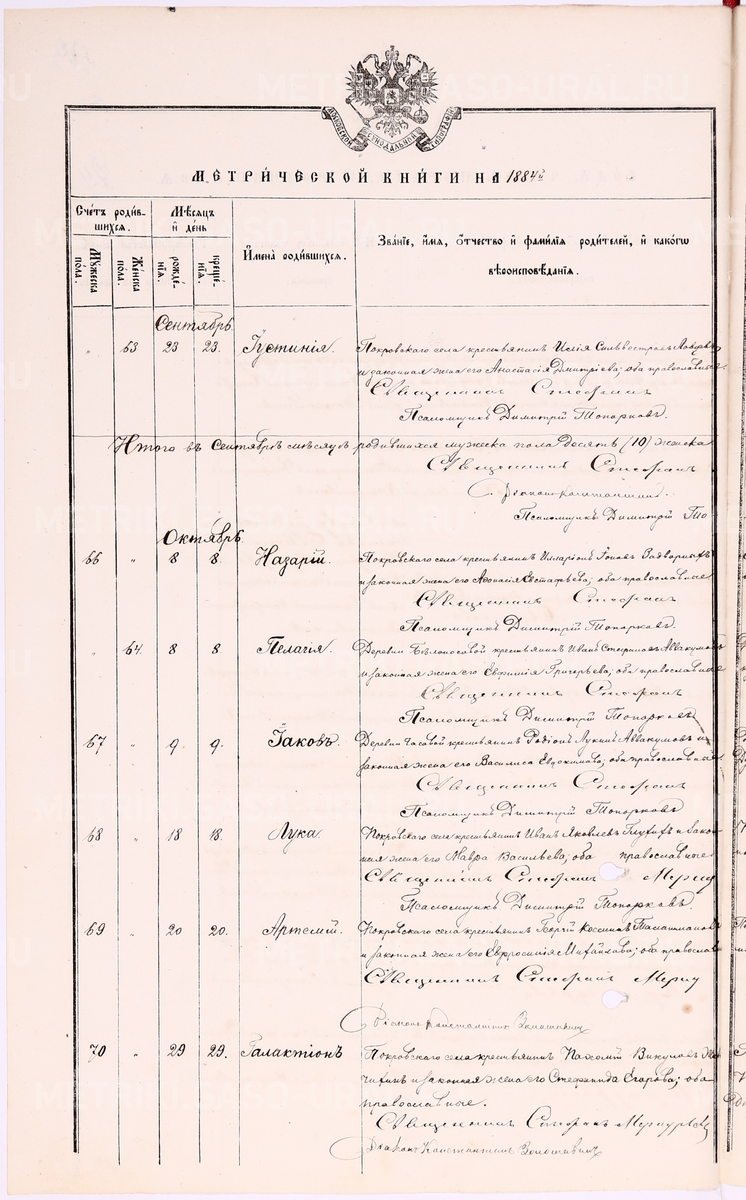 МОСКОВСКОЙ СѴНОДАЛЬНОЙ ТИПОГРАФІИ
МЕТРИ́ЧЕСКОЙ КНИ́ГИ НА 1884й
Сче́тъ роди́в-
шихся.
Мꙋ́жеска
по́ла.
Же́нска
по́ла.
Мѣ́сяцъ
и҆ де́нь
рожде́-
нїѧ.
креще́-
нїѧ.
И҆мена̀ роди́вшихся.
Зва́нїе, и҆́мѧ, ѻ҆́тчество и҆ фами́лїѧ роди́телей, и҆ како́гѡ
вѣроисповѣ́данїѧ.
Сентябрь
„ 63 23 23. Іустинія. Покровскаго села крестьянинъ Илія Сильвестровъ
и законная жена его Анастасія Димитріева; оба православные
Священникъ Стефанъ
Псаломщикъ Димитрій Топорковъ.
Итого въ Сентябрѣ мѣсяцѣ родившихся мужеска пола десять (10) женска
Священникъ Стефанъ
Діаконъ Константинъ
Псаломщикъ Димитрій То-
Октябрь
66 „ 8 8 Назарій. Покровскаго села крестьянинъ Илларіонъ Іоновъ
и законная жена его Аѳанасія Евстафьева; оба православные
Священникъ Стефанъ
Псаломщикъ Димитрій Топорковъ.
„ 64. 8 8 Пелагія. Деревни Бѣлоносовой крестьянинъ Иванъ Аввакумовъ
и законная жена его Евфимія Григорьева; оба православные
Священникъ Стефанъ
Псаломщикъ Димитрій Топорковъ
67 „ 9. 9. Іаковъ. Деревни Часовой крестьянинъ Родіонъ Лукинъ Аввакумовъ и
законная жена его Василиса Евдокимова; оба православные
Священникъ Стефанъ
Псаломщикъ Димитрій Топорковъ
68 „ 18 18. Лука. Покровскаго села крестьянинъ Иванъ Яковлевъ Глухихъ и закон-
ная жена его Мавра Васильева; оба православные
Священникъ Стефанъ
Псаломщикъ Димитрій Топорковъ.
69 „ 20 20. Артемій. Покровскаго села крестьянинъ Георгій Косминъ
и законная жена его Евфросинія Михайлова; оба православ
Священникъ Стефанъ
Діаконъ Константинъ
70 „ 29 29. Галактіонъ Покровскаго села крестьянинъ Пахомій Викуловъ
и законная жена его Стефанида Егорова; оба
православные.
Священникъ Стефанъ
Діаконъ Константинъ